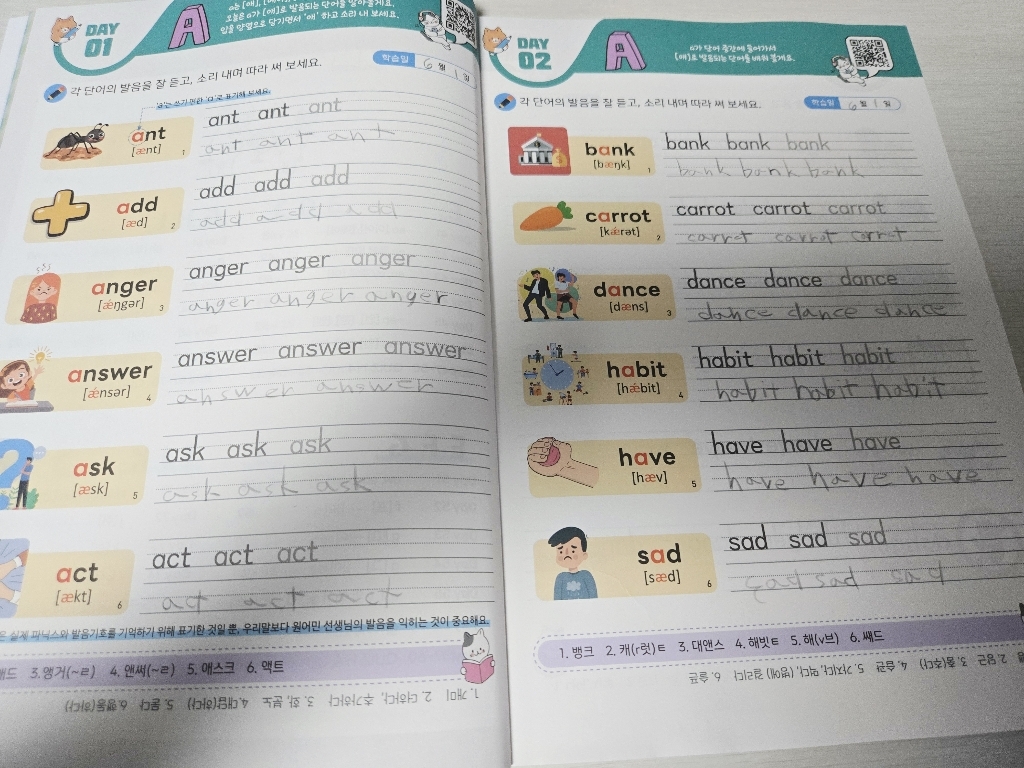 DAY
01
A
a는 [애],
오늘은 a가 [애]로 발음되는 단어를 알아볼게요.
입을 양옆으로 당기면서 '애' 하고 소리 내 보세요.
학습일 6월 1일
각 단어의 발음을 잘 듣고, 소리 내며 따라 써 보세요.
ant
[ænt]
1
ant ant ant
ant ant ant
add
[æd]
2
add add add
add add add
anger
[ǽŋgər]
3
anger anger anger
anger anger anger
answer
[ǽnsər]
4
answer answer answer
answer answer
ask
[æsk]
5
ask ask ask
ask ask ask
act
[ækt]
6
act act act
act act act
은 실제 파닉스와 발음기호를 기억하기 위해 표기한 것일 뿐, 우리말보다 원어민 선생님의 발음을 익히는 것이 중요해요.
3.앵거(~ㄹ) 4.앤써(~ㄹ) 5.애스크 6.액트
1. 개미 2. 더하다, 추가하다 3. 화, 분노 4.대답(하다) 5. 묻다 6.행동(하다)
DAY
02
A
a가 단어 중간에 들어가서
[애]로 발음되는 단어를 배워 볼게요.
학습일 6월 1일
각 단어의 발음을 잘 듣고, 소리 내며 따라 써 보세요.
bank
[bæŋk]
1
bank bank bank
bank bank bank
carrot
[kǽrət]
2
carrot carrot carrot
carrot carrot carrot
dance
[dæns]
3
dance dance dance
dance dance dance
habit
[hǽbit]
4
habit habit habit
habit habit habit
have
[hæv]
5
have have have
have have have
sad
[sæd]
6
sad sad sad
sad sad sad
1. 뱅크 2. 캐(r럿)ㅌ 3. 대앤스 4. 해빗ㅌ 5. 해(v브) 6. 쌔드
2.당근 3.춤(추다) 4. 습관 5. 가지다, 먹다, (병)에 걸리다 6. 슬픈